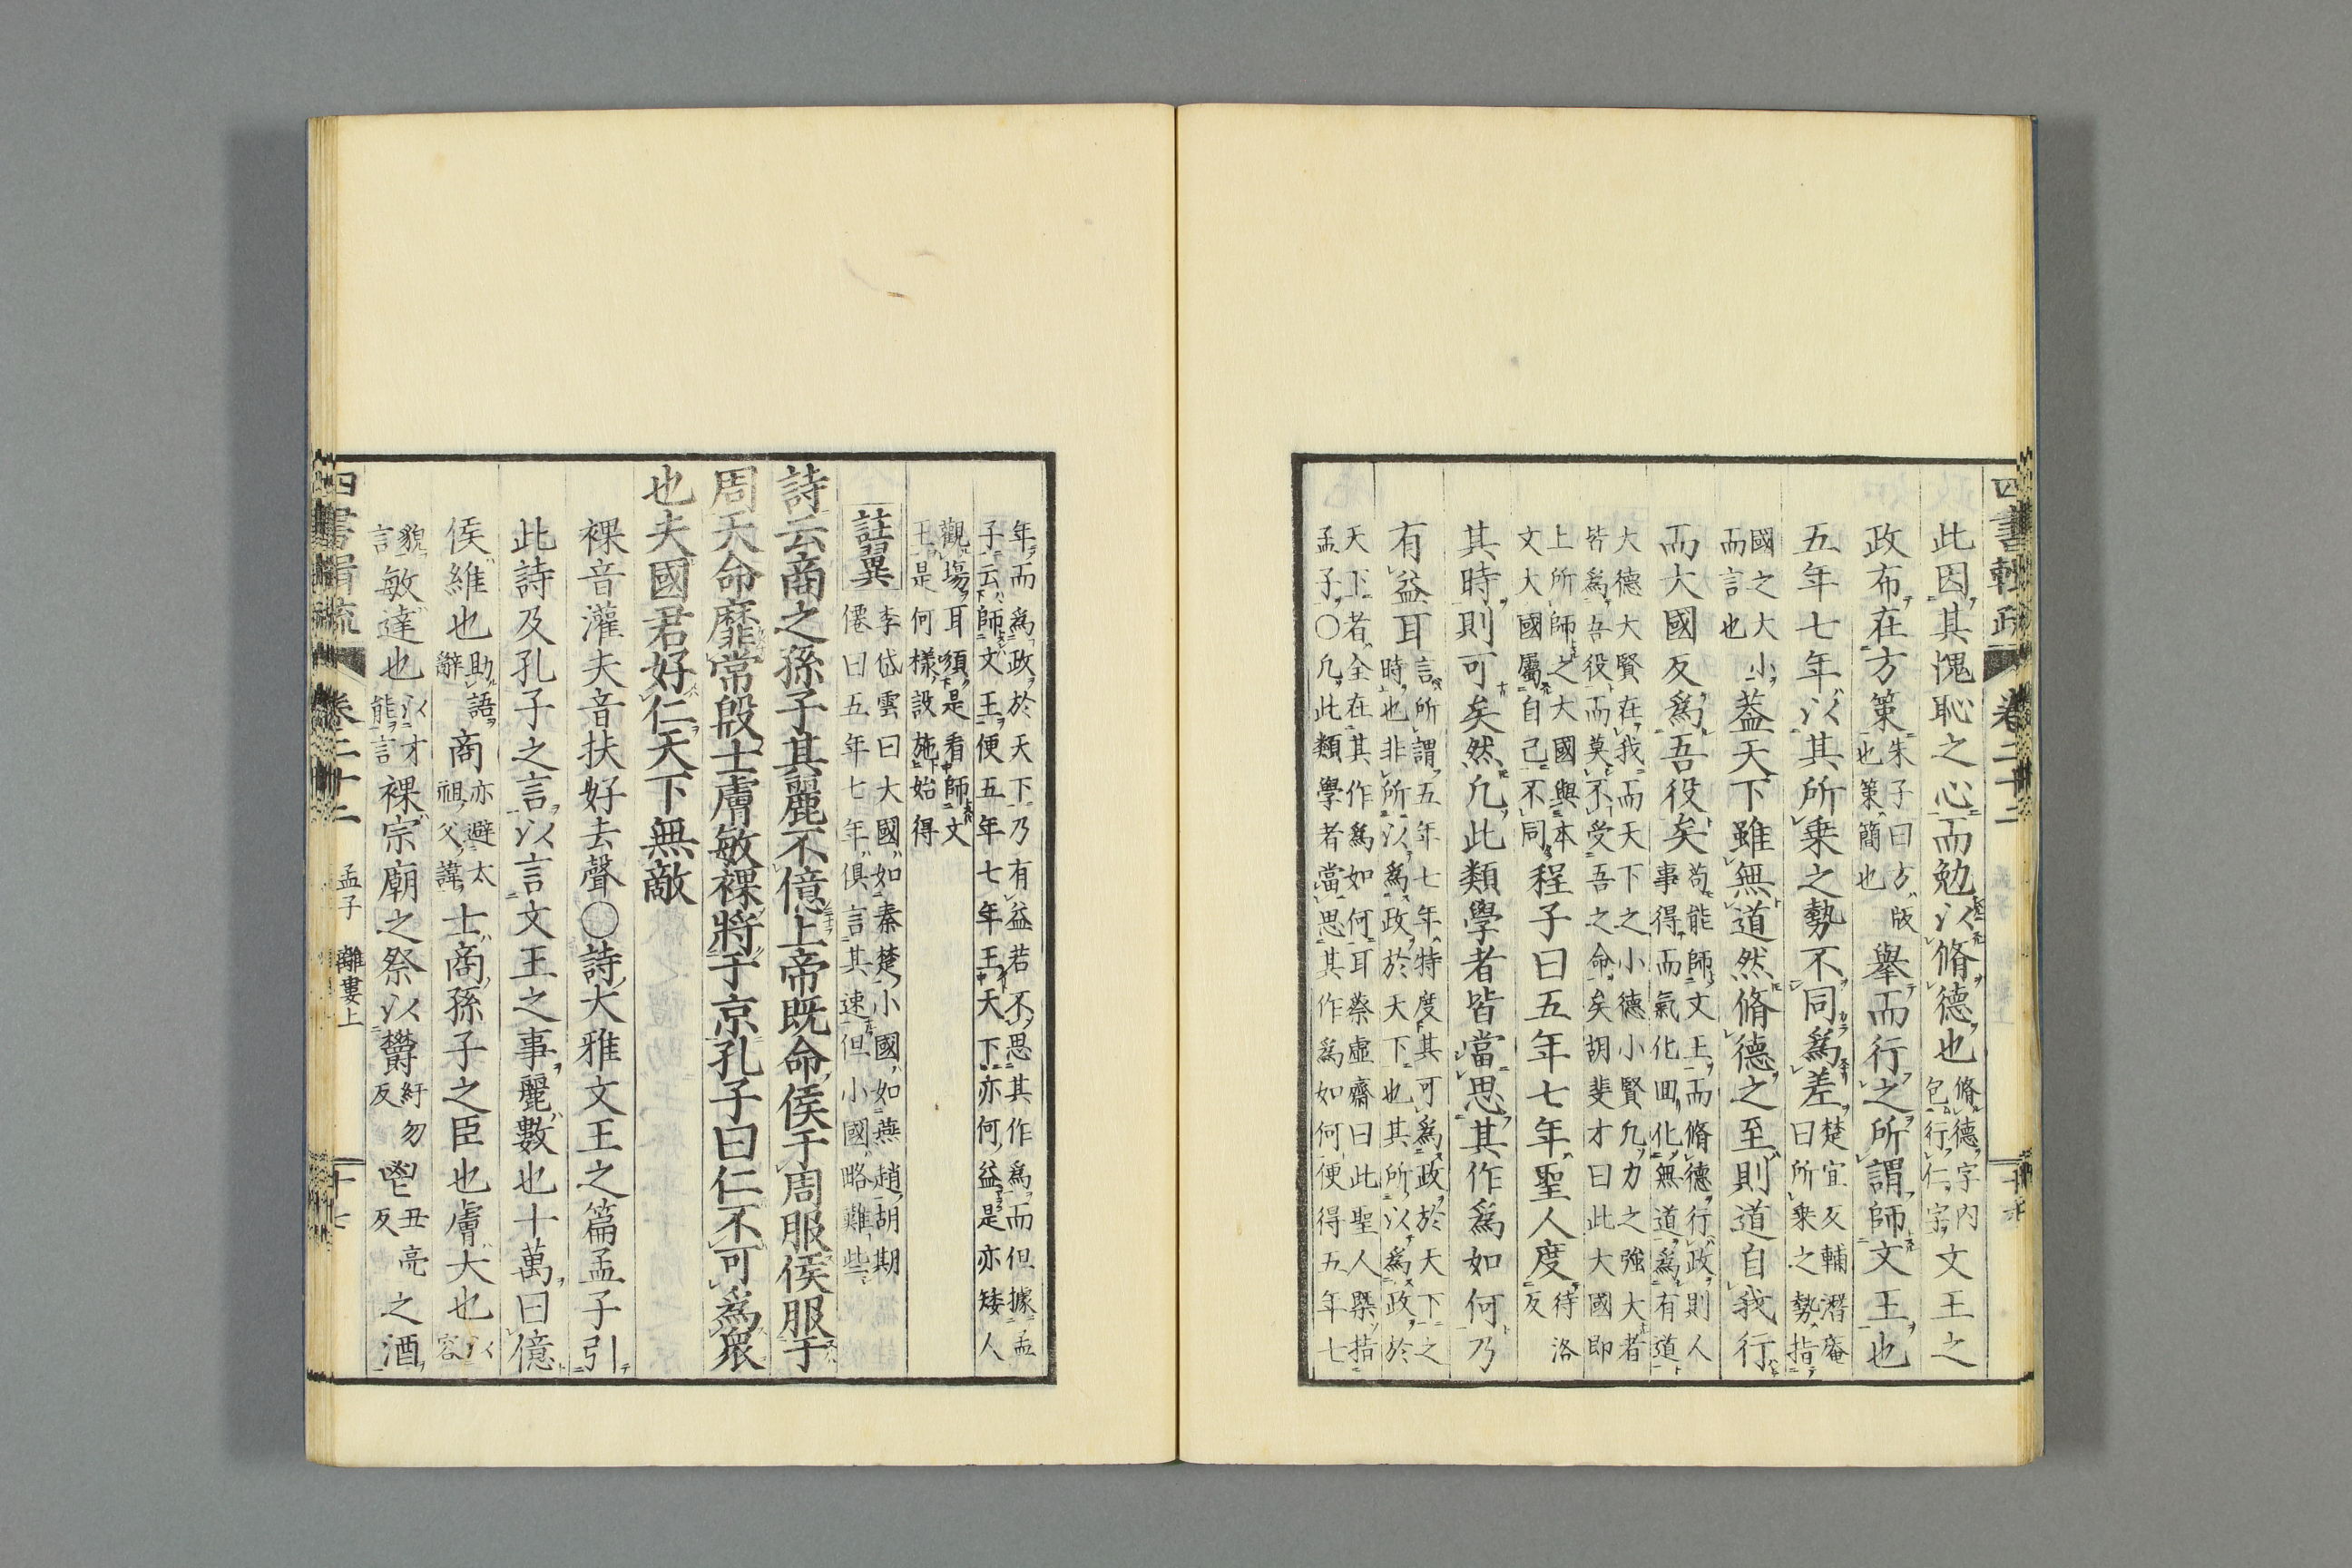 四書輯疏 卷二十二
此因其愧恥之心而勉以脩德也 脩德字內
包行仁字 文王之
政布在方策 朱子曰方版
也策簡也 舉而行之所謂師文王也
五年七年以其所乗之勢不同爲差 楚宜又輔潛庵
曰所乗之勢指
國之大小
而言也 葢天下雖無道然脩德之至則道自我行
而大國反爲吾役矣 苟能師文王而脩德行政則人
事得而氣化囬化無道爲有道
大德大賢在我而天下之小德小賢凢力之強大者
皆爲吾役而莫不受吾之命矣胡斐才曰此大國即
上所師之大國與本
文大國屬自己不同 程子曰五年七年聖人度 待洛
反
其時則可矣然凢此類學者皆當思其作爲如何乃
有益耳 言所謂五年七年特度其可爲政於天下之
時也非所以爲政於天下也其所以爲政於
天下者全在其作爲如何耳蔡虛齋曰此聖人㮣指
孟子〇凢此類學者當思其作爲如何便得五年七
年而爲政於天下乃有益若不思其作爲而但據孟
子云師文王便五年七年王天下亦何益是亦矮人
觀塲耳須是看師文
王是何樣設施始得
註異 李岱雲曰大國如秦楚小國如燕趙胡期
僊曰五年七年俱言其速但小國略難些
詩云商之孫子其麗不億上帝既命侯于周服侯服于
周天命靡常殷士膚敏祼將于京孔子曰仁不可爲衆
也夫國君好仁天下無敵
祼音灌夫音扶好去聲〇詩大雅文王之篇孟子引
此詩及孔子之言以言文王之事麗數也十萬曰億
侯維也 助語
辭 商 亦避太
祖父諱 士商孫子之臣也膚大也 以
容
貌
言 敏達也 以才
能言 祼宗廟之祭以鬱 紆勿
反 鬯 丑亮
反 之酒
四書輯疏 卷二十二 孟子 離婁上 十七